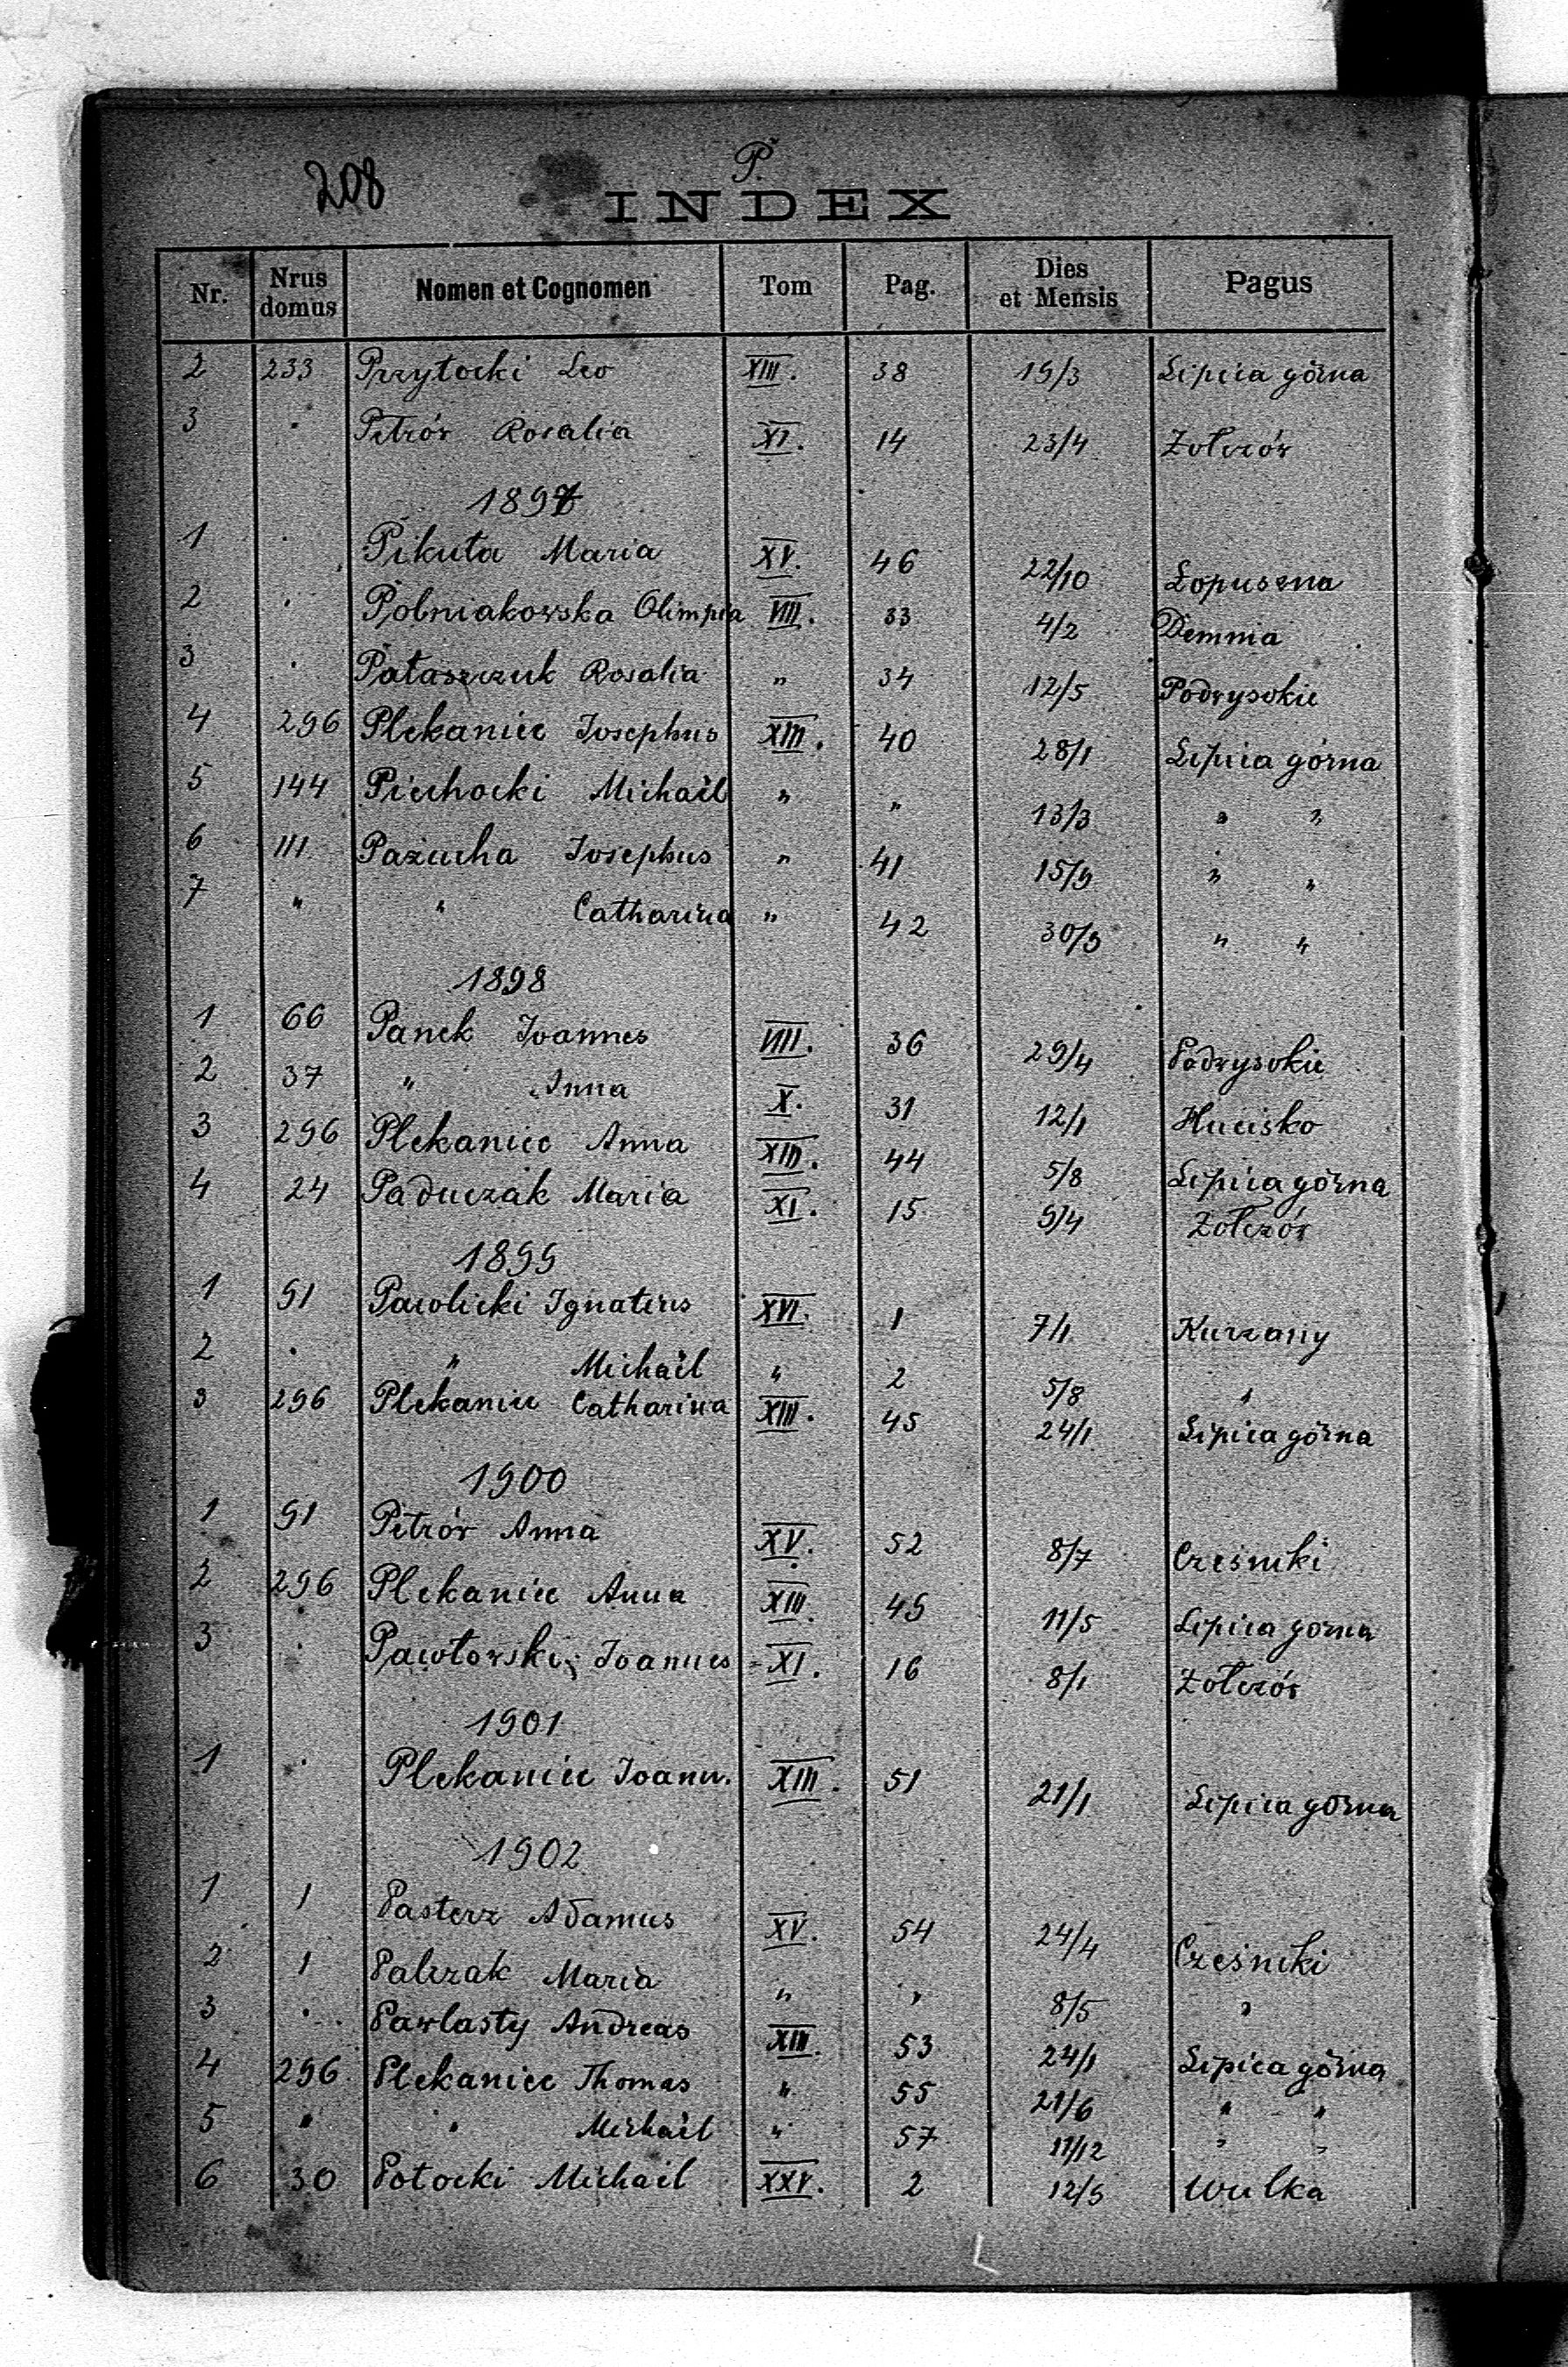 208
P.
INDEX
Nr. Nrus domus Nomen et Cognomen Tom Pag. Dies et Mensis Pagus
2 233 Przytocki Leo XIII. 38 19/3 Lipica górna
3 . Petrów Rosalia XI. 14 23/4 Żołczów
1897
1 . Pikuta Maria XV. 46 22/10 Łopuszna
2 . Polniakowska Olimpia VIII. 33 4/2 Demnia
3 . Pataszczuk Rosalia " 34 12/5 Podwysokie
4 296 Plekaniec Josephus XIII. 40 28/1 Lipica górna
5 144 Piechocki Michaël " " 13/3 " "
6 111 Pazucha Josephus " 41 15/9 " "
7 " " Catharina " 42 30/9 " "
1898
1 66 Panek Joannes VIII. 36 29/4 Podwysokie
2 37 " Anna X. 31 12/1 Hucisko
3 296 Plekaniec Anna XIII. 44 5/8 Lipica górna
4 24 Paduczak Maria XI. 15 9/4 Żołczów
1899
1 91 Pawlicki Ignatius XVI. 1 7/1 Kurzany
2 . " Michaël " 2 5/8 "
3 296 Plekaniec Catharina XIII. 45 24/1 Lipica górna
1900
1 91 Petrów Anna XV. 52 8/7 Cześniki
2 296 Plekaniec Anna XIII. 49 11/5 Lipica górna
3 . Pawłowski Joannes XI. 16 8/1 Żołczów
1901
1 . Plekaniec Joann. XIII. 51 21/1 Lipica górna
1902
1 1 Pasterz Adamus XV. 54 24/4 Cześniki
2 1 Palczak Maria " " 8/5 "
3 . Pawlasty Andreas XIII. 53 24/1 Lipica górna
4 296 Plekaniec Thomas " 55 21/6 " "
5 " " Michaël " 57 11/12 " "
6 30 Potocki Michael XXV. 2 12/5 Wulka